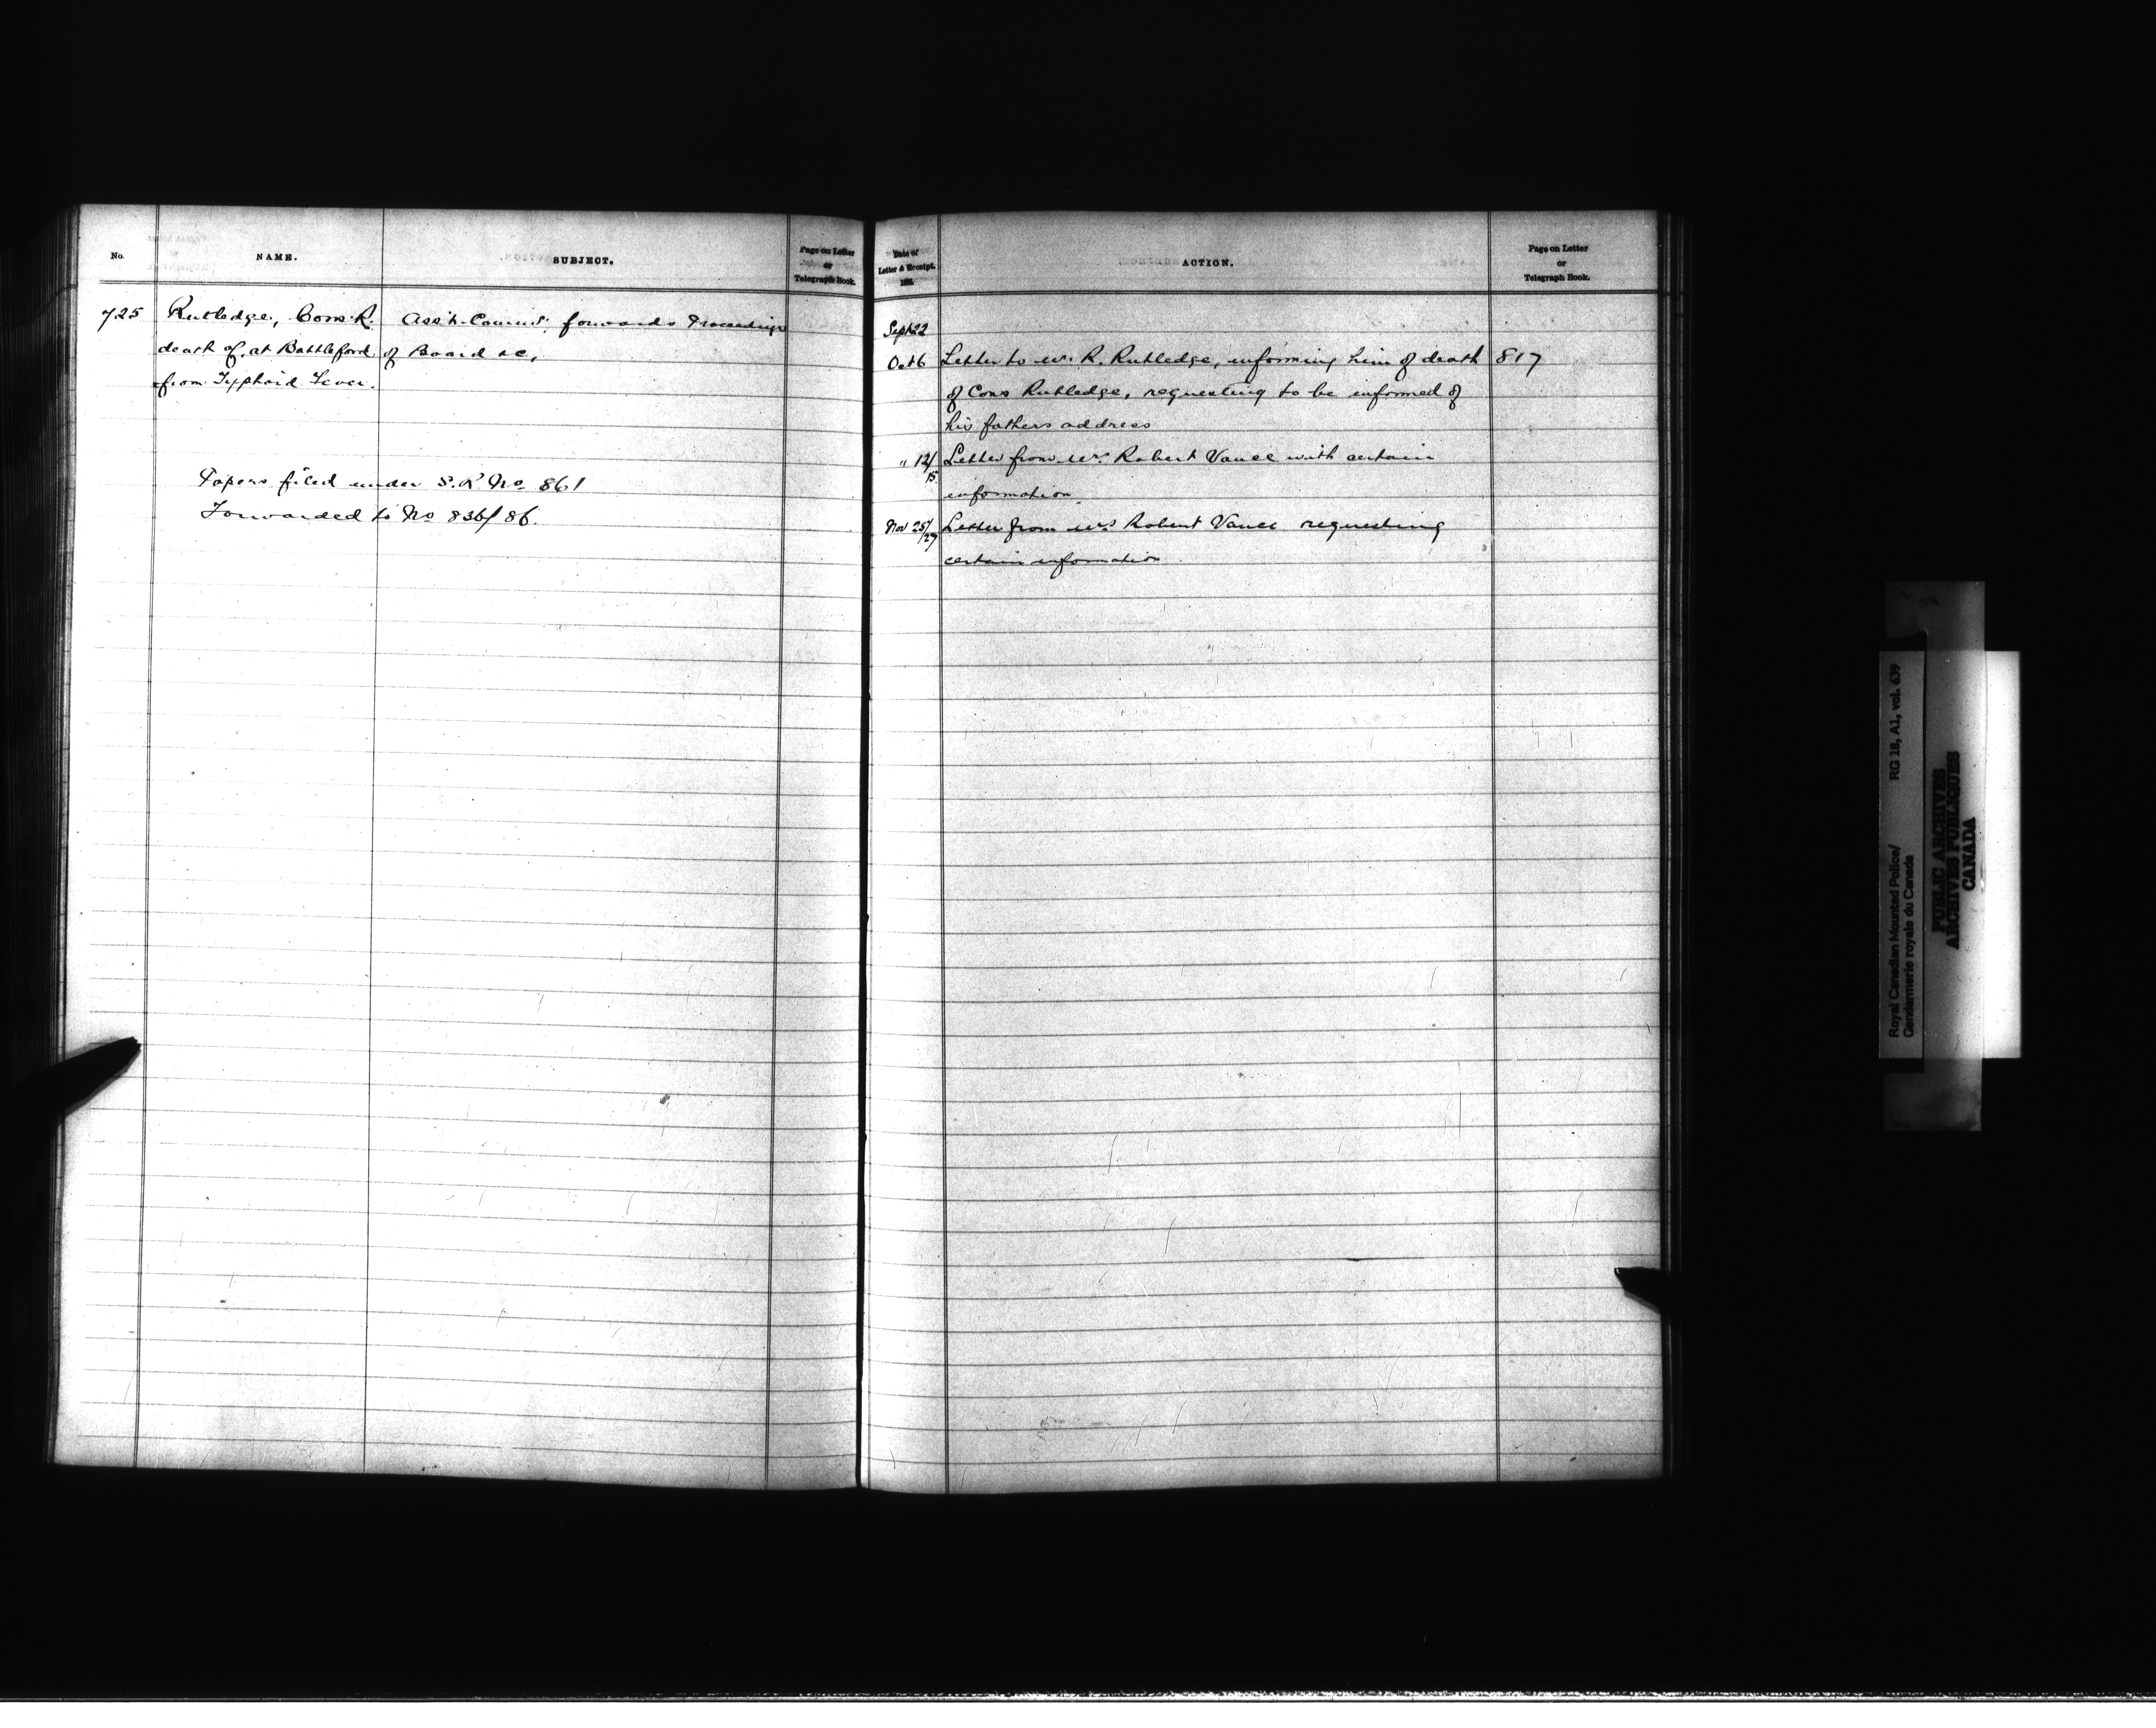 No.
NAME.
SUBJECT.
Page on Letter
or
Telegraph Book.
725
Rutledge, Cons. R.
death of, at Battleford
from Typhoid Fever.
Ass't. Commr. forwards Proceedings
of Board &c,
Papers filed under S.R. No 861
Forwarded to No 836/86.
Date of
Letter & Receipt.
188
ACTION.
Page on Letter
or
Telegraph Book.
Sept 22
Oct 6 Letter to Mr. R. Rutledge, informing him of death 817
of Cons Rutledge, requesting to be informed of
his fathers address
" 12/15 Letter from Mr. Robert Vance with certain
information.
Nov 25/27 Letter from Mrs Robert Vance requesting
certain information
Royal Canadian Mounted Police/ RG 18, A1, vol. 639
Gendarmerie royale du Canada
PUBLIC ARCHIVES
ARCHIVES PUBLIQUES
CANADA